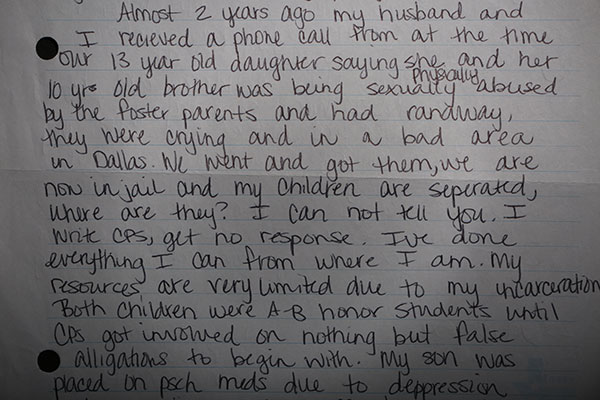 Almost 2 years ago my husband and
I recieved a phone call from at the time
our 13 year old daughter saying she and her
physically
10 yrs old brother was being sexually abused
by the foster parents and had ranaway,
they were crying and in a bad area
in Dallas. We went and got them, we are
now in jail and my children are seperated,
where are they? I can not tell you. I
write CPS, get no response. I've done
everything I can from where I am. My
resources are very limited due to my incarceration
Both children were A-B honor students until
CPS got involved on nothing but false
alligations to begin with. My son was
placed on psch meds due to deppression